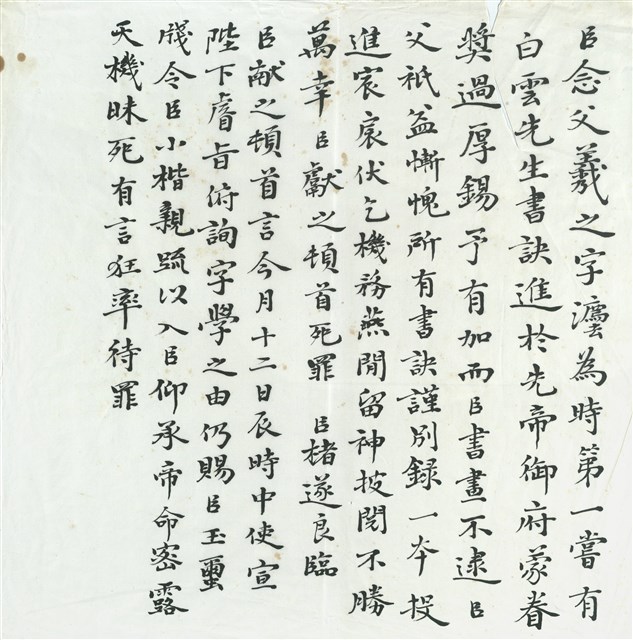 臣念父羲之字灋為時第一嘗有
白雲先生書訣進於先帝御府蒙眷
獎過厚錫予有加而臣書畫不逮臣
父祇益慚愧所有書訣謹別錄一本投
進宸扆伏乞機務燕閒留神披閱不勝
萬幸臣獻之頓首死罪 臣楮遂良臨
臣献之頓首言今月十二日辰時中使宣
陛下睿旨俯詢字學之由仍賜臣玉璽
牋令臣小楷親疏以入臣仰承帝命密露
天機昧死有言狂率待罪